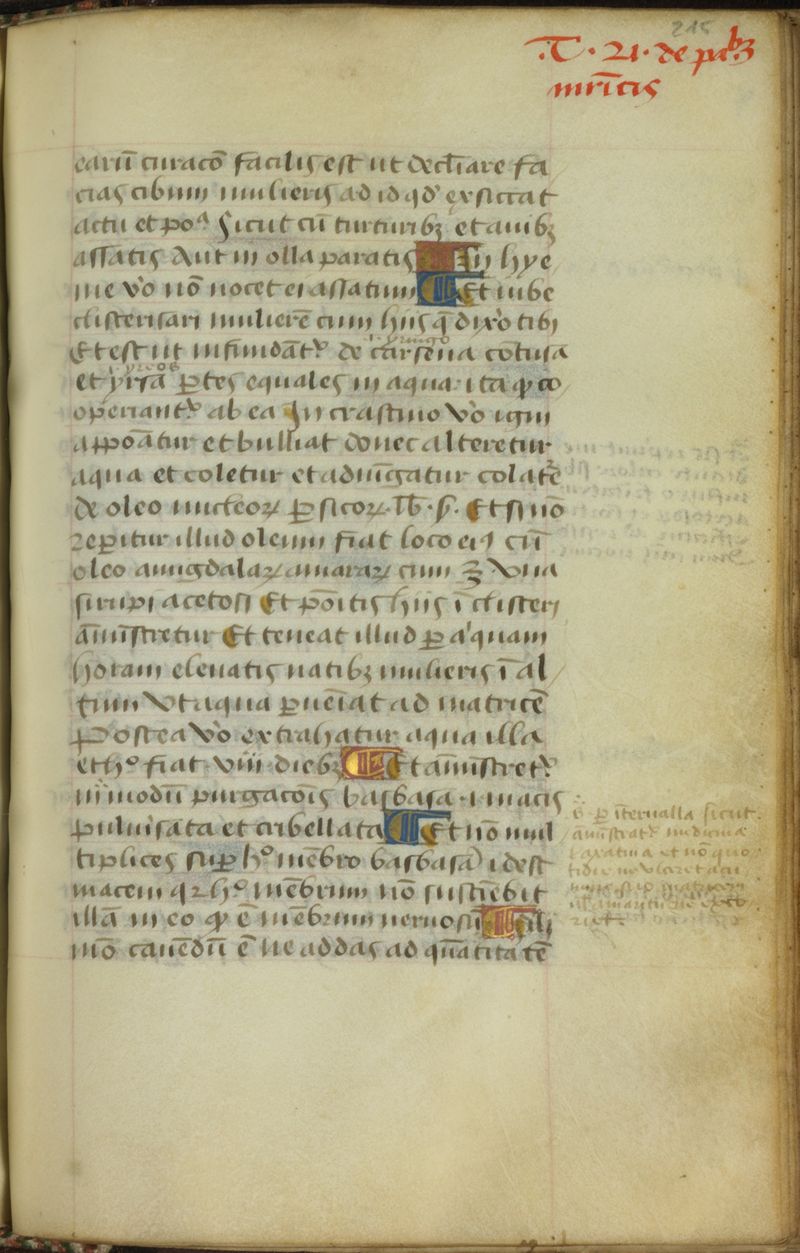 215
.T. 21. de paꝛbꝫ
mr̄icis
earū curacō facilis est ut decliare fa
cias cibum mulieris ad id qd' exsiccat
actu et poª Sicut cū turturibꝫ et auibꝫ
assatis Aut in olla paratis In hye
me v̊o nō nocet ei assatum Et iube
clisterisari mulierē cum hijs q̄ dix̊o tibi
Et est ut infundāt᷑ de carsena cōtusa
et yrsā ꝑtes equales in aqua ita ꝙ co
operiant᷑ ab ea In crastino v̊o igni
appōātur et bulliat donec alteretur
aqua et coletur et adiūgatur colatē
de oleo nucleoꝝ ꝑsicoꝝ lb. s̄. Et si nō
reꝑitur illud oleum fiat loco eiꝰ cū
oleo amigdalaꝝ amaraꝝ cum ℥ vna
sirupi acetosi Et pōitis hijs ī clisteri
am̄istretur Et teneat illud ꝑ aliquam
horam eleuatis natibꝫ mulieris ī al
tum Vt aqua ꝑueniat ad matricē
Postea v̊o extrahatur aqua illa
et hº fiat viii diebꝫ Et am̄istret᷑
in modū purgacōis basbasa i macis
puluisata et cribellata Et nō mul
tiplices suꝑ hº mēbro basbasā idest
macem qꝛ hº mēbrum nō sustīebit
illā in eo ꝙ ē mēbrum neruosū
mō cauēdū ē ne addas ad quātitatē
ꝑ īterualla sicut
am̄istrat᷑ medicina
laxatiua et nō quo
tidie